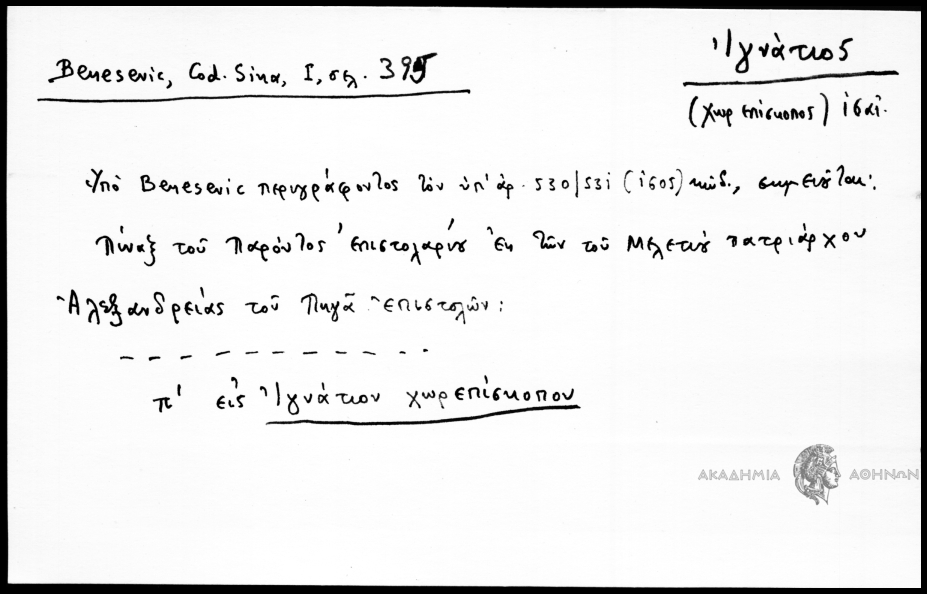 Ἰγνάτιος
(χωρεπίσκοπος) ιϛαι.
Benesevic, Cod. Sina, I, σελ. 395
Ὑπὸ Benesevic περιγράφοντος τὸν ὑπ' ἀρ. 530/531 (1605) κώδ., σημειοῦται:
Πίναξ τοῦ παρόντος ἐπιστολαρίου ἐκ τῶν τοῦ Μελετίου πατριάρχου
Ἀλεξανδρείας τοῦ Πηγᾶ ἐπιστολῶν:
π' εἰς Ἰγνάτιον χωρεπίσκοπον
ΑΚΑΔΗΜΙΑ ΑΘΗΝΩΝ